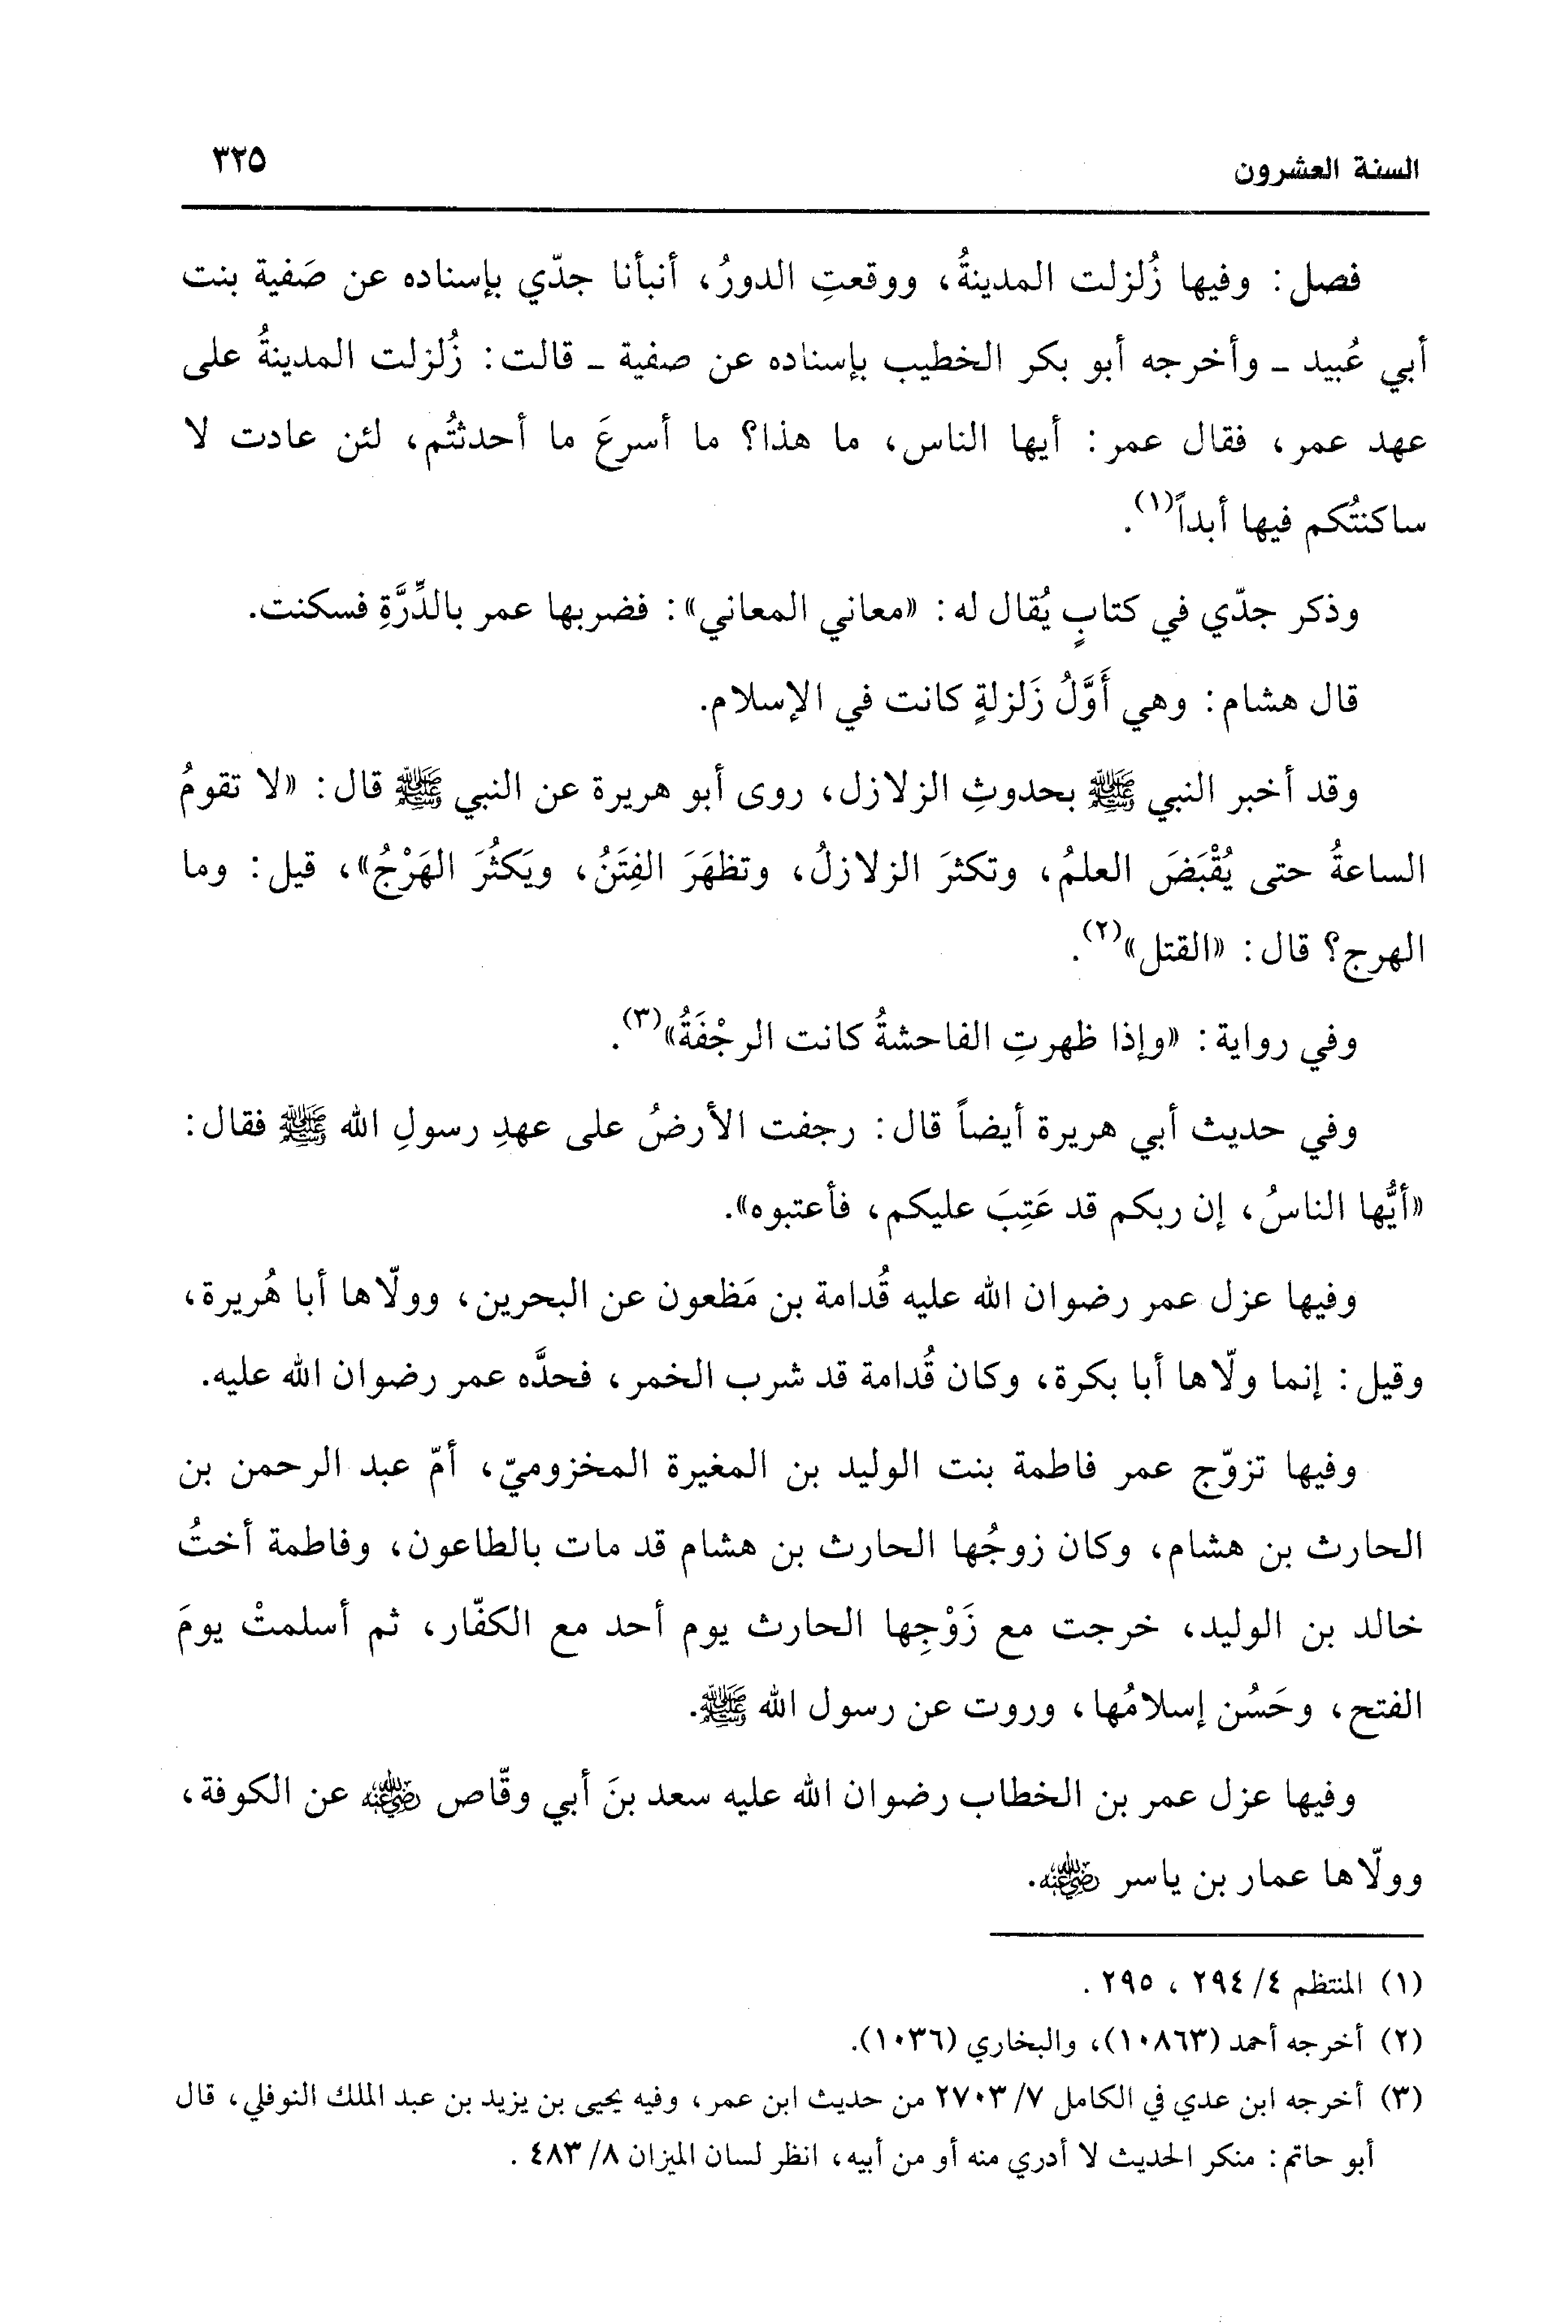 السنة العشرون ٣٢٥
فصل: وفيها زُلزلت المدينةُ، ووقعتِ الدورُ، أنبأنا جدّي بإسناده عن صَفية بنت
أبي عُبيد ـ وأخرجه أبو بكر الخطيب بإسناده عن صفية ـ قالت: زُلزلت المدينةُ على
عهد عمر، فقال عمر: أيها الناس، ما هذا؟ ما أسرعَ ما أحدثتُم، لئن عادت لا
ساكنتُكم فيها أبداً(١).
وذكر جدّي في كتابٍ يُقال له: «معاني المعاني»: فضربها عمر بالدِّرَّةِ فسكنت.
قال هشام: وهي أَوَّلُ زَلزلةٍ كانت في الإسلام.
وقد أخبر النبي ﷺ بحدوثِ الزلازل، روى أبو هريرة عن النبي ﷺ قال: «لا تقومُ
الساعةُ حتى يُقْبَضَ العلمُ، وتكثرَ الزلازلُ، وتظهَرَ الفِتَنُ، ويَكثُرَ الهَرْجُ»، قيل: وما
الهرج؟ قال: «القتل»(٢).
وفي رواية: «وإذا ظهرتِ الفاحشةُ كانت الرجْفَةُ»(٣).
وفي حديث أبي هريرة أيضاً قال: رجفت الأرضُ على عهدِ رسولِ الله ﷺ فقال:
«أيُّها الناسُ، إن ربكم قد عَتِبَ عليكم، فأعتبوه».
وفيها عزل عمر رضوان الله عليه قُدامة بن مَظعون عن البحرين، وولّاها أبا هُريرة،
وقيل: إنما ولّاها أبا بكرة، وكان قُدامة قد شرب الخمر، فحدَّه عمر رضوان الله عليه.
وفيها تزوّج عمر فاطمة بنت الوليد بن المغيرة المخزوميّ، أمّ عبد الرحمن بن
الحارث بن هشام، وكان زوجُها الحارث بن هشام قد مات بالطاعون، وفاطمة أختُ
خالد بن الوليد، خرجت مع زَوْجِها الحارث يوم أحد مع الكفّار، ثم أسلمتْ يومَ
الفتح، وحَسُن إسلامُها، وروت عن رسول الله ﷺ.
وفيها عزل عمر بن الخطاب رضوان الله عليه سعد بنَ أبي وقّاص رضي الله عنه عن الكوفة،
وولّاها عمار بن ياسر رضي الله عنه.
(١) المنتظم ٤/ ٢٩٤ ، ٢٩٥ .
(٢) أخرجه أحمد (١٠٨٦٣)، والبخاري (١٠٣٦).
(٣) أخرجه ابن عدي في الكامل ٧/ ٢٧٠٣ من حديث ابن عمر، وفيه يحيى بن يزيد بن عبد الملك النوفلي، قال
أبو حاتم: منكر الحديث لا أدري منه أو من أبيه، انظر لسان الميزان ٨/ ٤٨٣ .